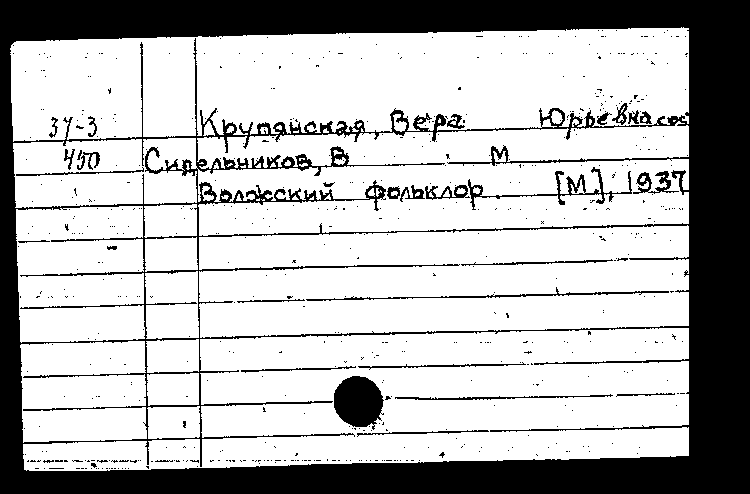 37-3 Крупянская, Вера Юрьевна сос
450 Сидельников, В М
Волжский фольклор. [М.], 1937